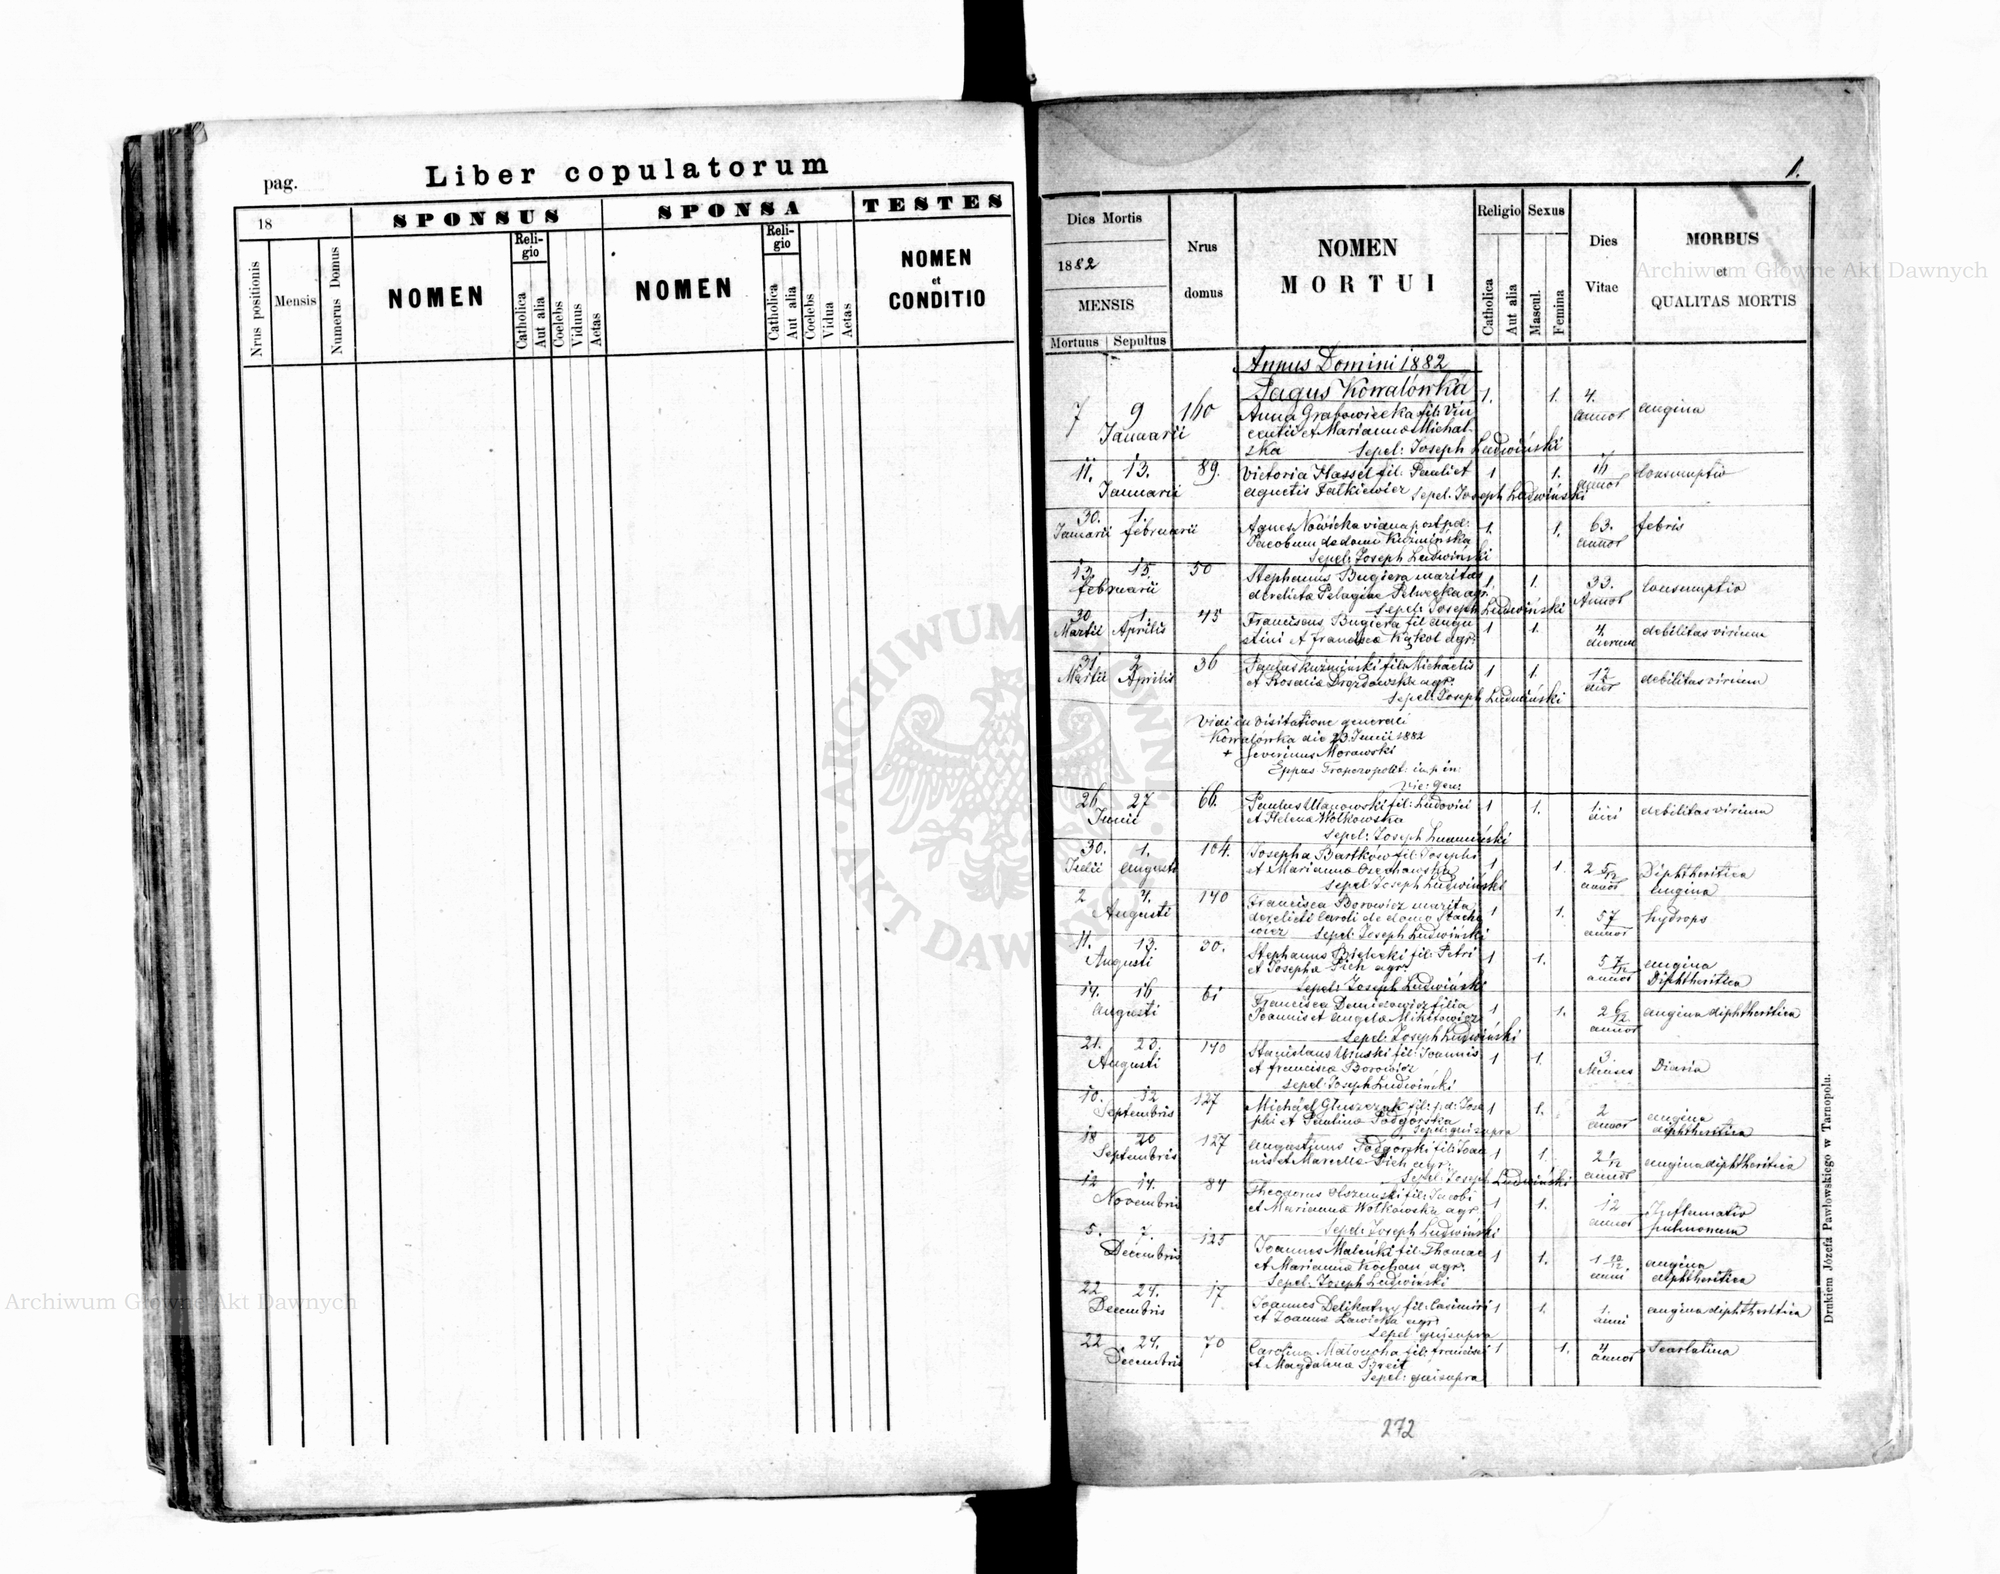 pag.
Liber copulatorum
18
SPONSUS
SPONSA
TESTES
Nrus positionis
Mensis
Numerus Domus
NOMEN
Reli-
gio
Catholica
Aut alia
Coelebs
Viduus
Aetas
NOMEN
Reli-
gio
Catholica
Aut alia
Coelebs
Vidua
Aetas
NOMEN
et
CONDITIO
1.
Dies Mortis
1882
MENSIS
Mortuus Sepultus
Nrus
domus
NOMEN
MORTUI
Religio
Catholica
Aut alia
Sexus
Mascul.
Femina
Dies
Vitae
MORBUS
et
QUALITAS MORTIS
Annus Domini 1882
Pagus Kowalówka
7 9 Januarii 160 Anna Grabowiecka fil: Vin 1. 1. 4. annor angina
centii et Marianna Michal-
ska Sepel: Joseph Ludwiński
11. 13. Januarii 89. Victoria Hassel fil: Pauli et 1 1. annor Consumptio
Agnetis Fatkiewicz Sepel: Joseph Ludwiński
30. Januarii 1. februarii Agnes Nowicka vidua post pd: 1. 1. 63. annor febris
Jacobum de domo Kuźmińska
Sepel: Joseph Ludwiński
13. 15. februarii 50 Stephanus Bugiera maritus 1. 1. 33. Annor Consumptio
derelictae Pelagiae agr.
Sepel: Joseph Ludwiński
30 Martii 1. Aprilis 45 Franciscus Bugiera fil Augu 1 1. 4. dierum debilitas virium
stini et Francisca Kąkol agr:
31 Martii 2 Aprilis 36 Paulus Kuźmiński fil: Michaelis 1 1. dier debilitas virium
et Rosalia Drozdowska agr:
Sepel: Joseph Ludwiński
Vidi in Visitatione generali
Kowalówka die 23 Junii 1882
+ Severinus Morawski
Eppus Trapezopolit: in p in:
Vic: Gen:
26 27 Junii 66. Paulus Ulanowski fil: Ludovici 1 1. 1 diei debilitas virium
et Helena Wołkowska
Sepel: Joseph Ludwiński
30. Julii 1. Augusti 104. Josepha Bartków fil: Josephi 1 1. 2 5/12 annor Diphtheritica
et Marianna Orzechowska angina
Sepel: Joseph Ludwiński
2 4. Augusti 140 Francisca Borowicz marita 1 1. 57 annor hydrops
derelicti Caroli de domo Stache
wicz Sepel: Joseph Ludwiński
11. 13. Augusti 30. Stephanus Bielecki fil: Petri 1 1. 5 7/12 annor angina
et Josepha Pich agr: Diphtheritica
Sepel: Joseph Ludwiński
14. 16 Augusti 61 Francisca Demidowicz filia 1 1. 2 6/12 annor angina diphtheritica
Joannis et Angela Mikitowicz
Sepel: Joseph Ludwiński
21. 23. Augusti 140 Stanislaus fil: Joannis 1 1. 3 Menses Diaria
et Francisca Borowicz
Sepel: Joseph Ludwiński
10. 12 Septembris 127 Michael Głuszczak fil: pd: Jose 1 1. 2 annor angina
phi et Paulina Podgórska diphtheritica
Sepel: qui supra
18 20 Septembris 127 Augustinus Podgórski fil: Joan 1 1. annor angina diphtheritica
nis et Marcella Pich agr:
Sepel: Joseph Ludwiński
12 14. Novembris 84 Theodorus Olszewski fil: Jacobi 1 1. 12 annor Inflamatio
et Marianna Wołkowska agr: pulmonum
Sepel: Joseph Ludwiński
5. 7. Decembris 125 Joannes Maleńki fil: Thomae 1 1. 1 10/12 anni angina
et Marianna Kochan agr: diphtheritica
Sepel: Joseph Ludwiński
22 24. Decembris 17 Joannes Delikatny fil: Casimiri 1 1. 1. anni angina diphtheritica
et Joanna Ławicka agr:
Sepel qui supra
22 24. Decembris 70 Carolina Matoucha fil: Francisci 1 1. 4 annor Scarlatina
et Magdalena Breit
Sepel: qui supra
272
Drukiem Józefa Pawłowskiego w Tarnopolu.
Archiwum Główne Akt Dawnych
Archiwum Główne Akt Dawnych
ARCHIWUM GŁÓWNE AKT DAWNYCH